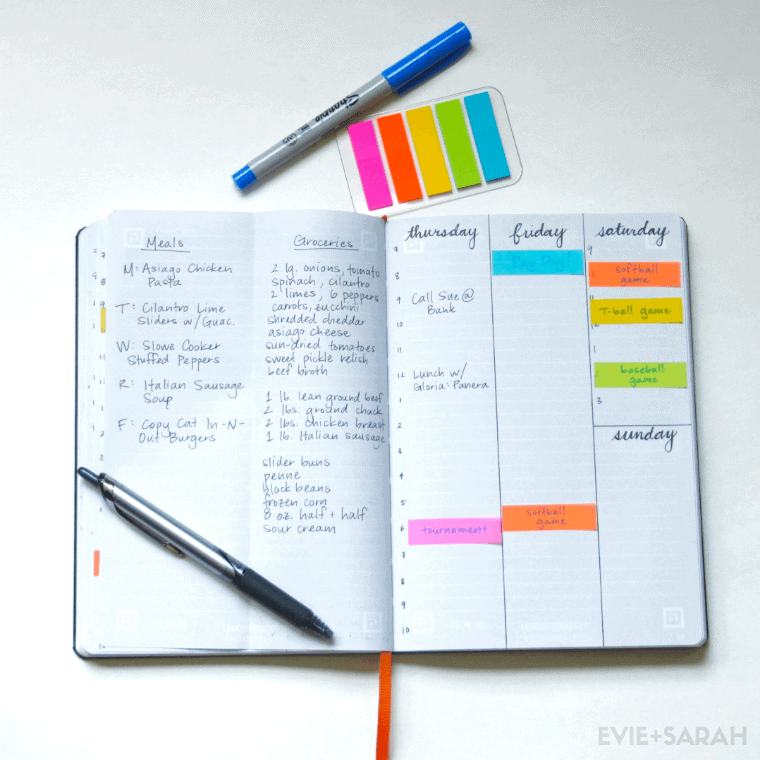 Sharpie
Meals
M: Asiago Chicken
Pasta
T: Cilantro Lime
Sliders w/Guac.
W: Slowe Cooker
Stuffed Peppers
R: Italian Sausage
Soup
F: Copy Cat In-N-
Out Burgers
Groceries
2 lg. onions, tomato
spinach, cilantro
2 limes, 6 peppers
carrots, zucchini
shredded cheddar
asiago cheese
sun-dried tomatoes
sweet pickle relish
beef broth
1 lb. lean ground beef
2 lbs. ground chuck
2 lbs. chicken breast
1 lb. Italian sausage
slider buns
penne
black beans
frozen corn
8 oz. half + half
sour cream
thursday
9
8
9
Call Sue @
Bank
10
11
12
Lunch w/
Gloria: Panera
1
2
3
4
5
6
tournament
7
8
9
10
friday
Pay Day!
softball
game
saturday
9
softball
game
T-ball game
1
baseball
game
3
sunday
EVIE+SARAH